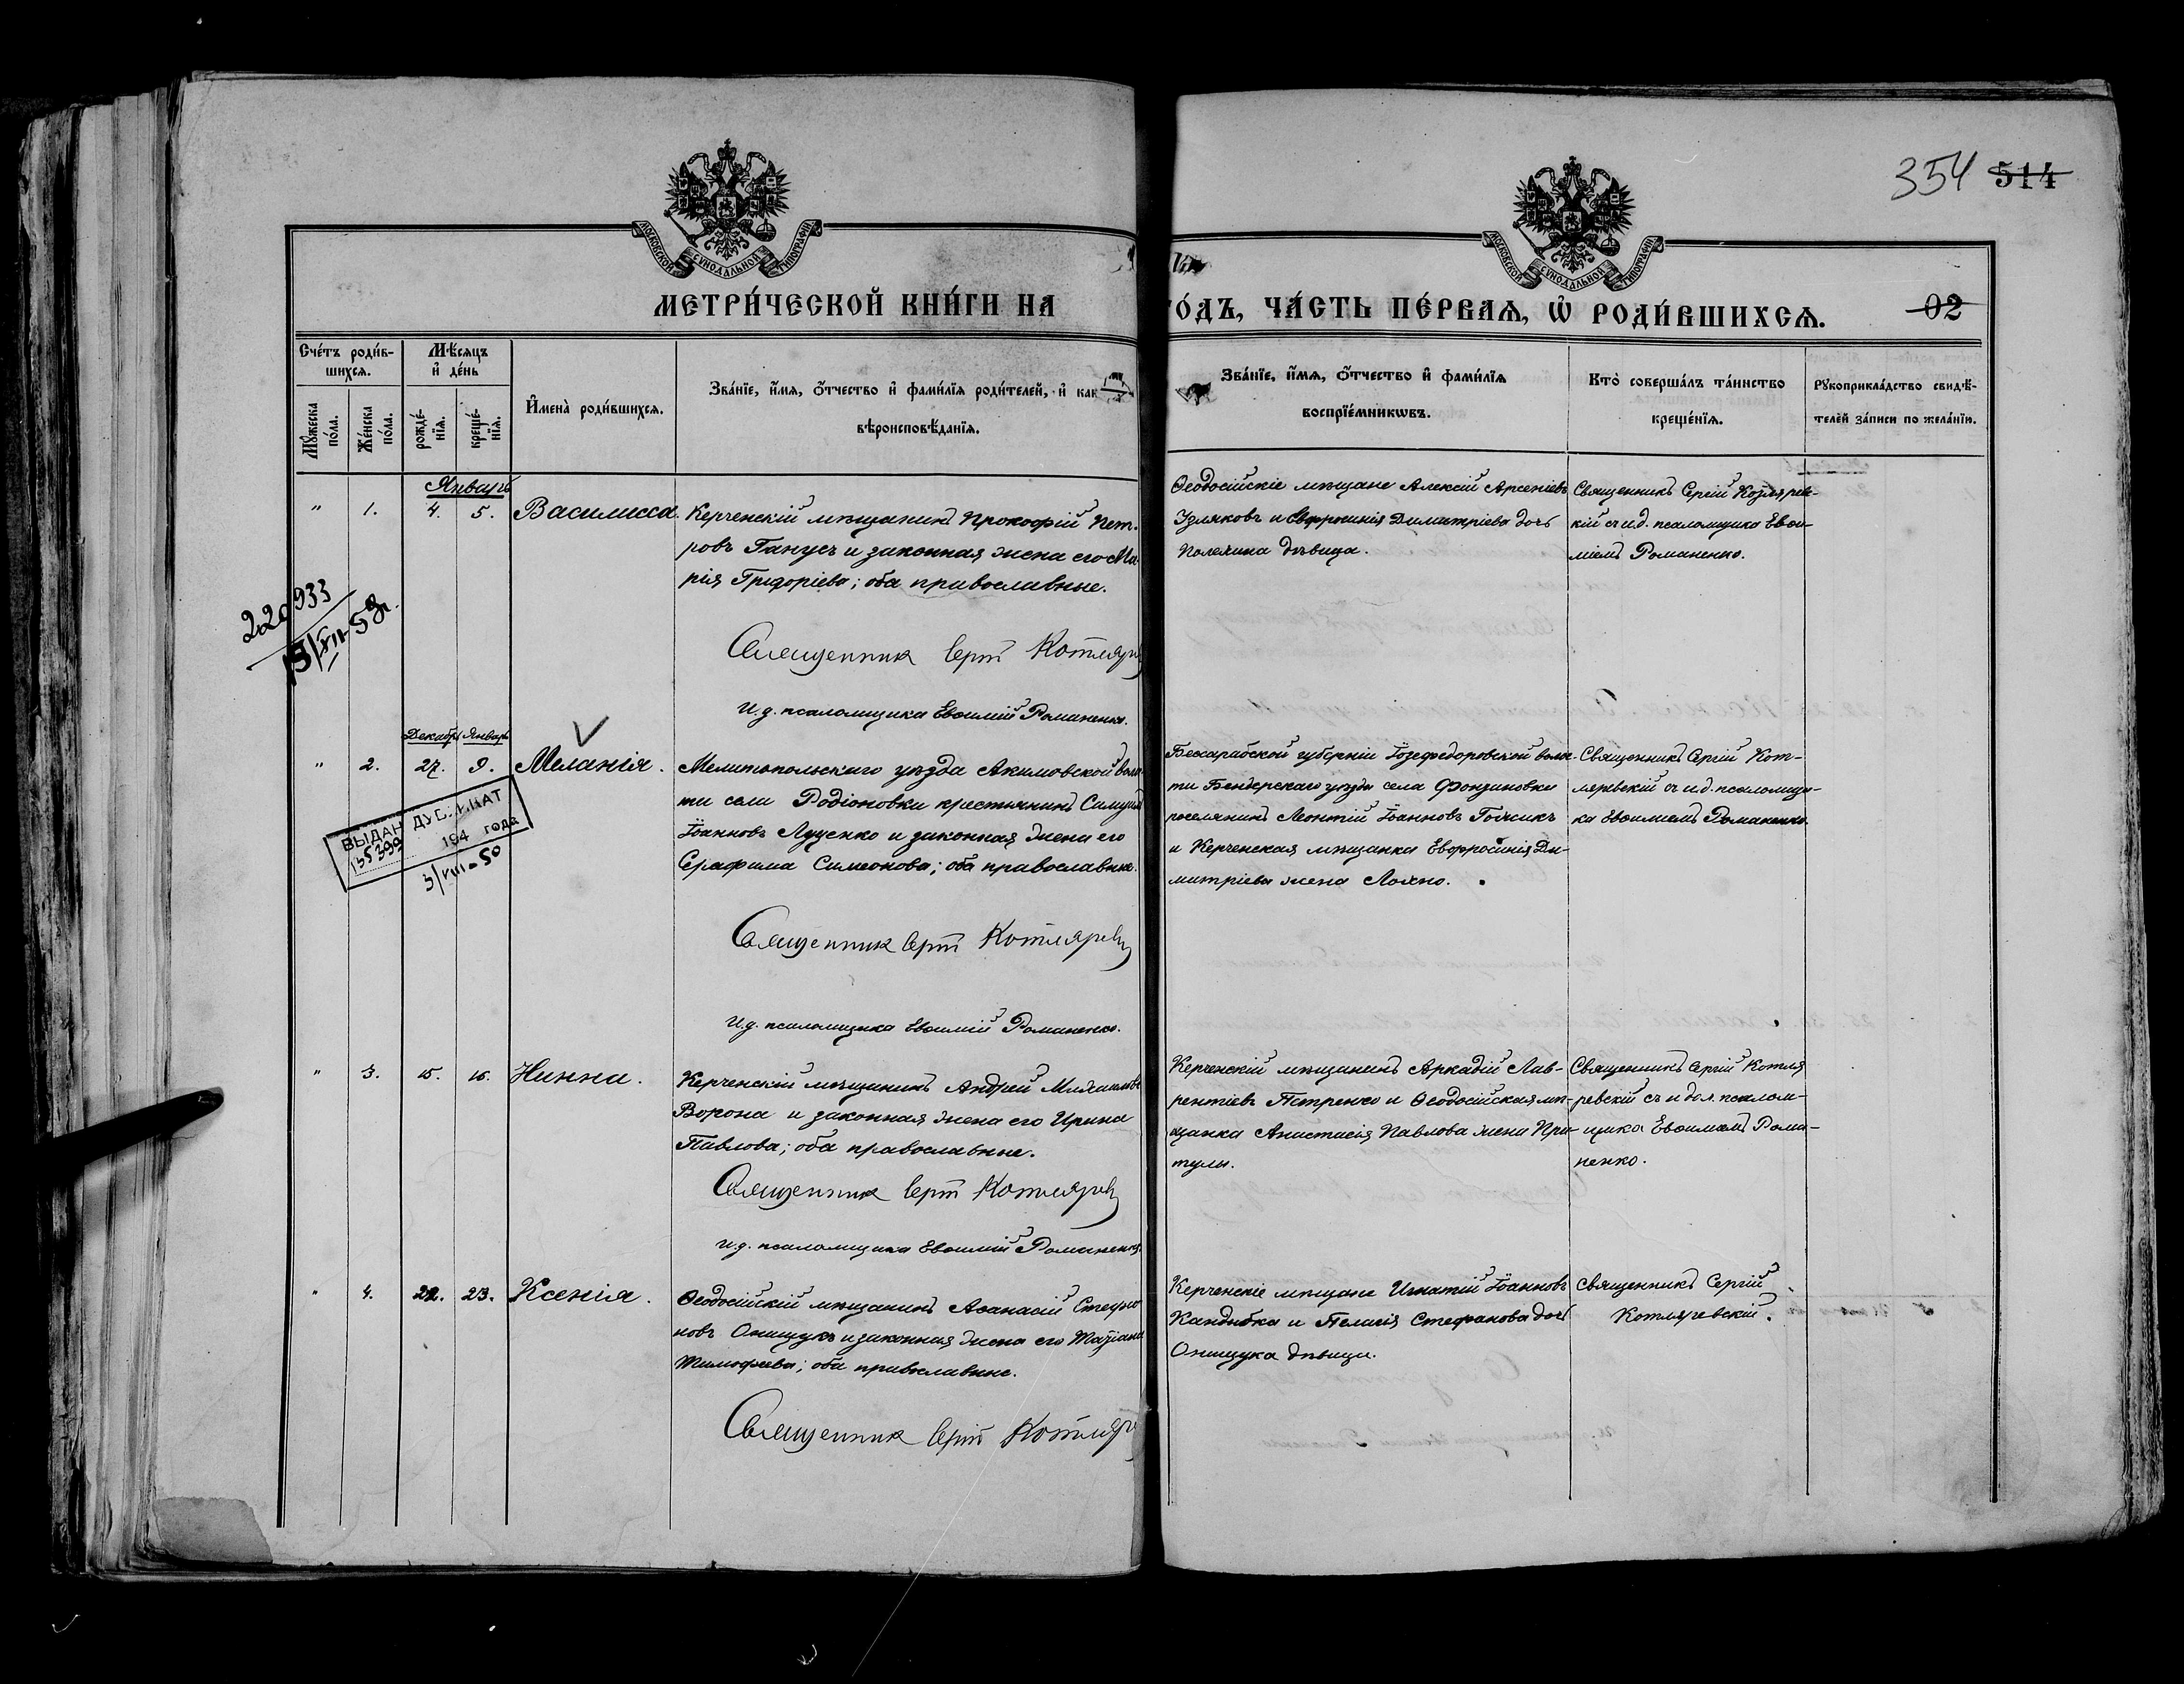 354 514
МОСКОВСКОЙ СѴНОДАЛЬНОЙ ТИПОГРАФІИ
МОСКОВСКОЙ СѴНОДАЛЬНОЙ ТИПОГРАФІИ
МЕТРИ́ЧЕСКОЙ КНИ́ГИ НА
ГО́ДЪ, ЧА́СТЬ ПЕ́РВАѦ, Ѡ҆ РОДИ́ВШИХСѦ.
02
Сче́тъ роди́в-
шихсѧ.
Мѣ́сѧцъ
и҆ де́нь
Мꙋ́жеска
по́ла.
Же́нска
по́ла.
рожде́-
нїѧ.
креще́-
нїѧ.
И҆мена̀ роди́вшихсѧ.
Зва́нїе, и҆́мѧ, ѻ҆́тчество и҆ фами́лїѧ роди́телей, и҆ как
вѣроисповѣ́данїѧ.
Зва́нїе, и҆́мѧ, ѻ҆́тчество и҆ фами́лїѧ
воспрїе́мникѡвъ.
Кто̀ соверша́лъ та́инство
креще́нїѧ.
Рꙋкоприкла́дство свидѣ́-
телей за́писи по жела́нїю.
Январь
" 1. 4. 5. Василисса.
Керченскій мѣщанинъ Прокофій Пет-
ровъ Ганусъ и законная жена его Ма-
рія Григоріева; оба православные.
Священник Сергій Котляре
И.д. псаломщика Евѳимій Романенко.
Ѳеодосійскіе мѣщане Алексій Арсеніевъ
Узляковъ и Евфросинія Димитріева дочь
дѣвица.
Священникъ Сергій Котлярев-
кій с и.д. псаломщика Евѳи-
міемъ Романенко.
220933
Декабрь Январь
" 2. 27. 9. Меланія.
Мелитопольскаго уѣзда Акимовской воло
ти села Родіоновки крестьянинъ
Іоанновъ Луценко и законная жена его
Серафима Симеонова; оба православные.
Священник Сергій Котляревс
И.д. псаломщика Евѳимій Романенко.
Бессарабской губерніи Іозефсдоровской волос-
ти Бендерскаго уѣзда села
поселянинъ Леонтій Іоанновъ
и Керченская мѣщанка Евфросинія Ди-
митріева жена
Священникъ Сергій Кот-
ляревскій с и.д. псаломщи-
ка Евѳиміемъ Романенко.
ВЫДАН ДУБЛИКАТ
135399 194 года
3/VIII-50
" 3. 15. 16. Нинна.
Керченскій мѣщанинъ Андрей Михаиловъ
Ворона и законная жена его Ирина
Павлова; оба православные.
Священник Сергій Котлярев
И.д. псаломщика Евѳимій Романенко.
Керченскій мѣщанинъ Аркадій Лав-
рентіевъ Петренко и Ѳеодосійская мѣ-
щанка Анастасія Павлова жена При-
тулы.
Священникъ Сергій Котля
ревскій съ и дол. псалом-
щика Евѳиміемъ Рома-
ненко.
" 4. 22. 23. Ксенія.
Ѳеодосійскій мѣщанинъ Аѳанасій Стефа
новъ Онищукъ и законная жена его Татіана
Тимофеева; оба православные.
Священник Сергій Котляре
Керченскіе мѣщане Игнатій Іоанновъ
Кандыбка и Пелагія Стефанова дочь
Онищука дѣвица.
Священникъ Сергій
Котляревскій.